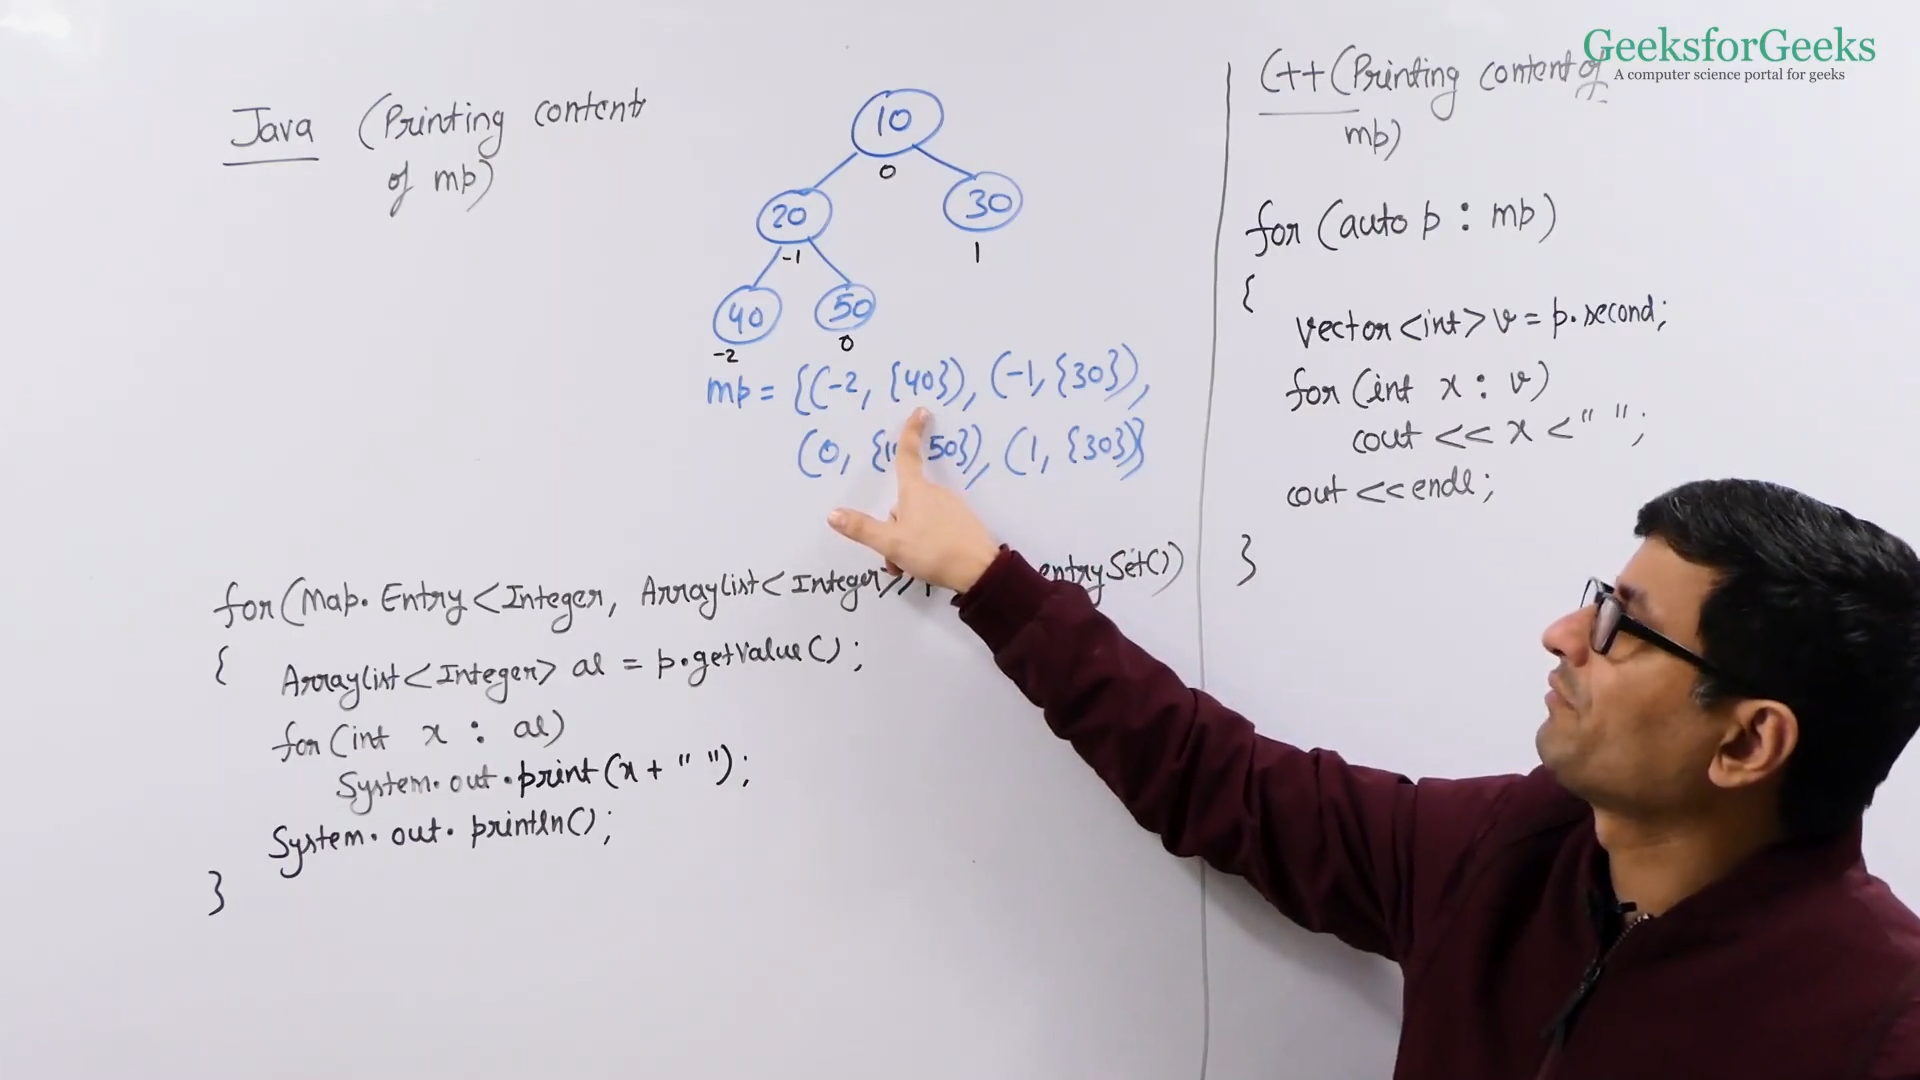 GeeksforGeeks
A computer science portal for geeks
Java (Printing contents
of mp)
10
0
20
30
-1
1
40
50
-2
0
mp = {(-2, {40}), (-1, {30}),
(0, {50}), (1, {30})}
for(Map.Entry<Integer, ArrayList<Integer>> entrySet())
{ ArrayList<Integer> al = p.getValue();
for(int x : al)
System.out.print(x + " ");
System.out.println();
}
C++ (Printing content of
mp)
for (auto p : mp)
{
vector<int> v = p.second;
for (int x : v)
cout << x < " ";
cout << endl;
}